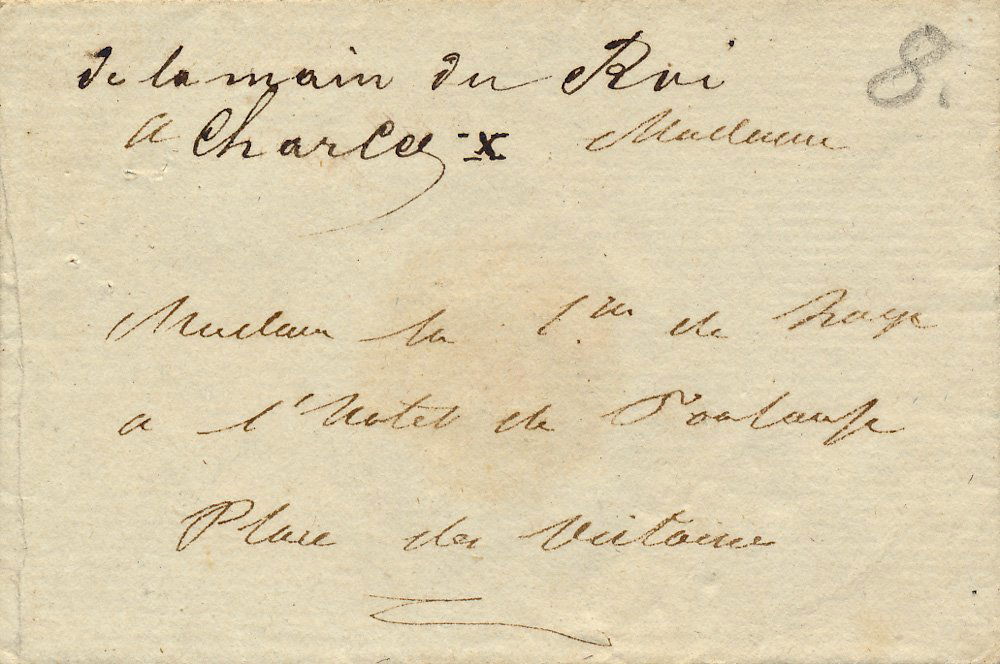 8.
de la main du Roi
a Charles X Madame
Madame la C.sse de
a l'hotel de Toulouse
Place des Victoires